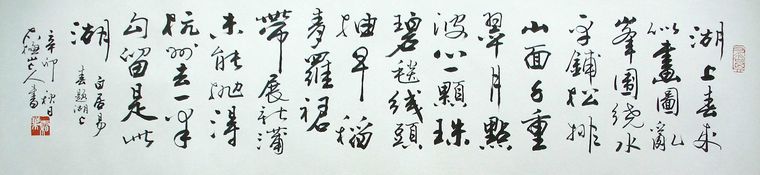 湖上春来
似畫圖亂
峯圍繞水
平鋪松排
山面千重
翠月點
波心一顆珠
碧毯綫頭
抽早稻
青羅裙
帶展新蒲
未能抛得
杭州去一半
勾留是此
湖
白居易
春題湖上
辛卯秋日
山人書